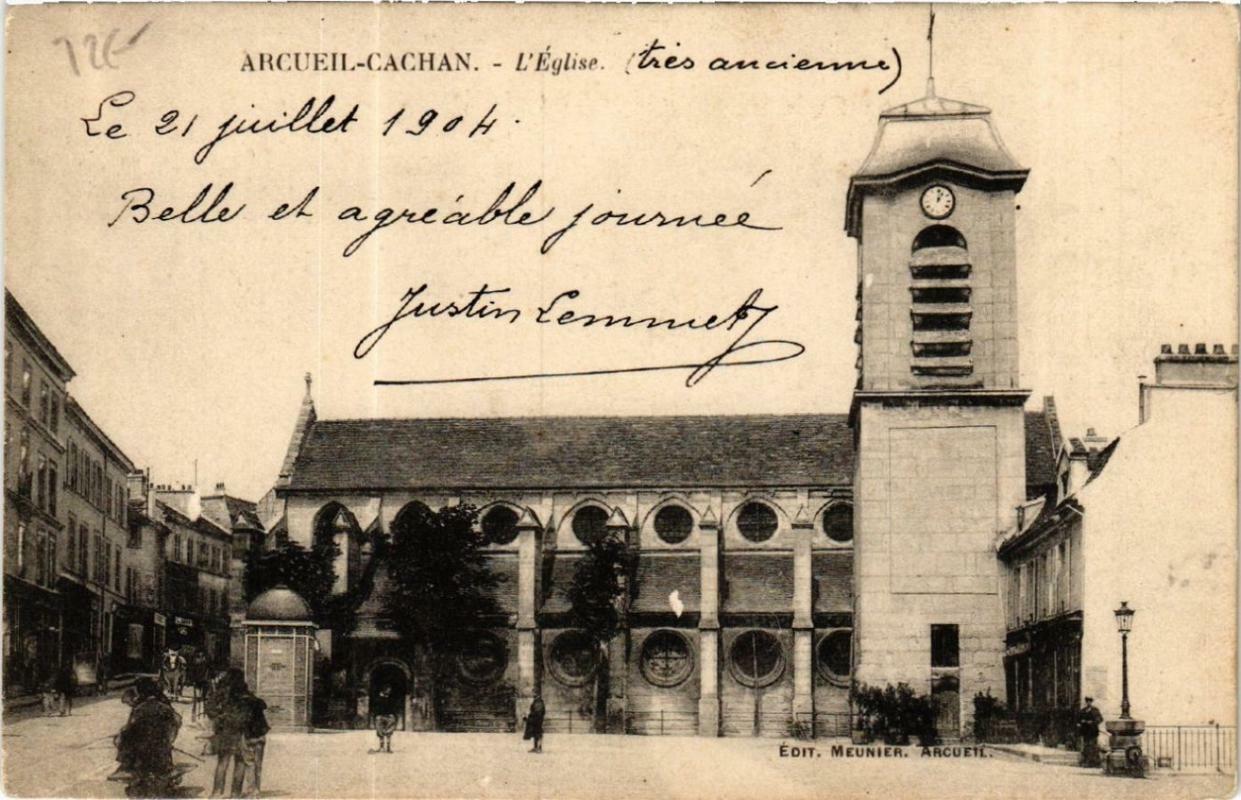 12€
ARCUEIL-CACHAN. - L'Église. (très ancienne)
Le 21 juillet 1904.
Belle et agréable journée
Justin Lemmet
ÉDIT. MEUNIER. ARCUEIL.